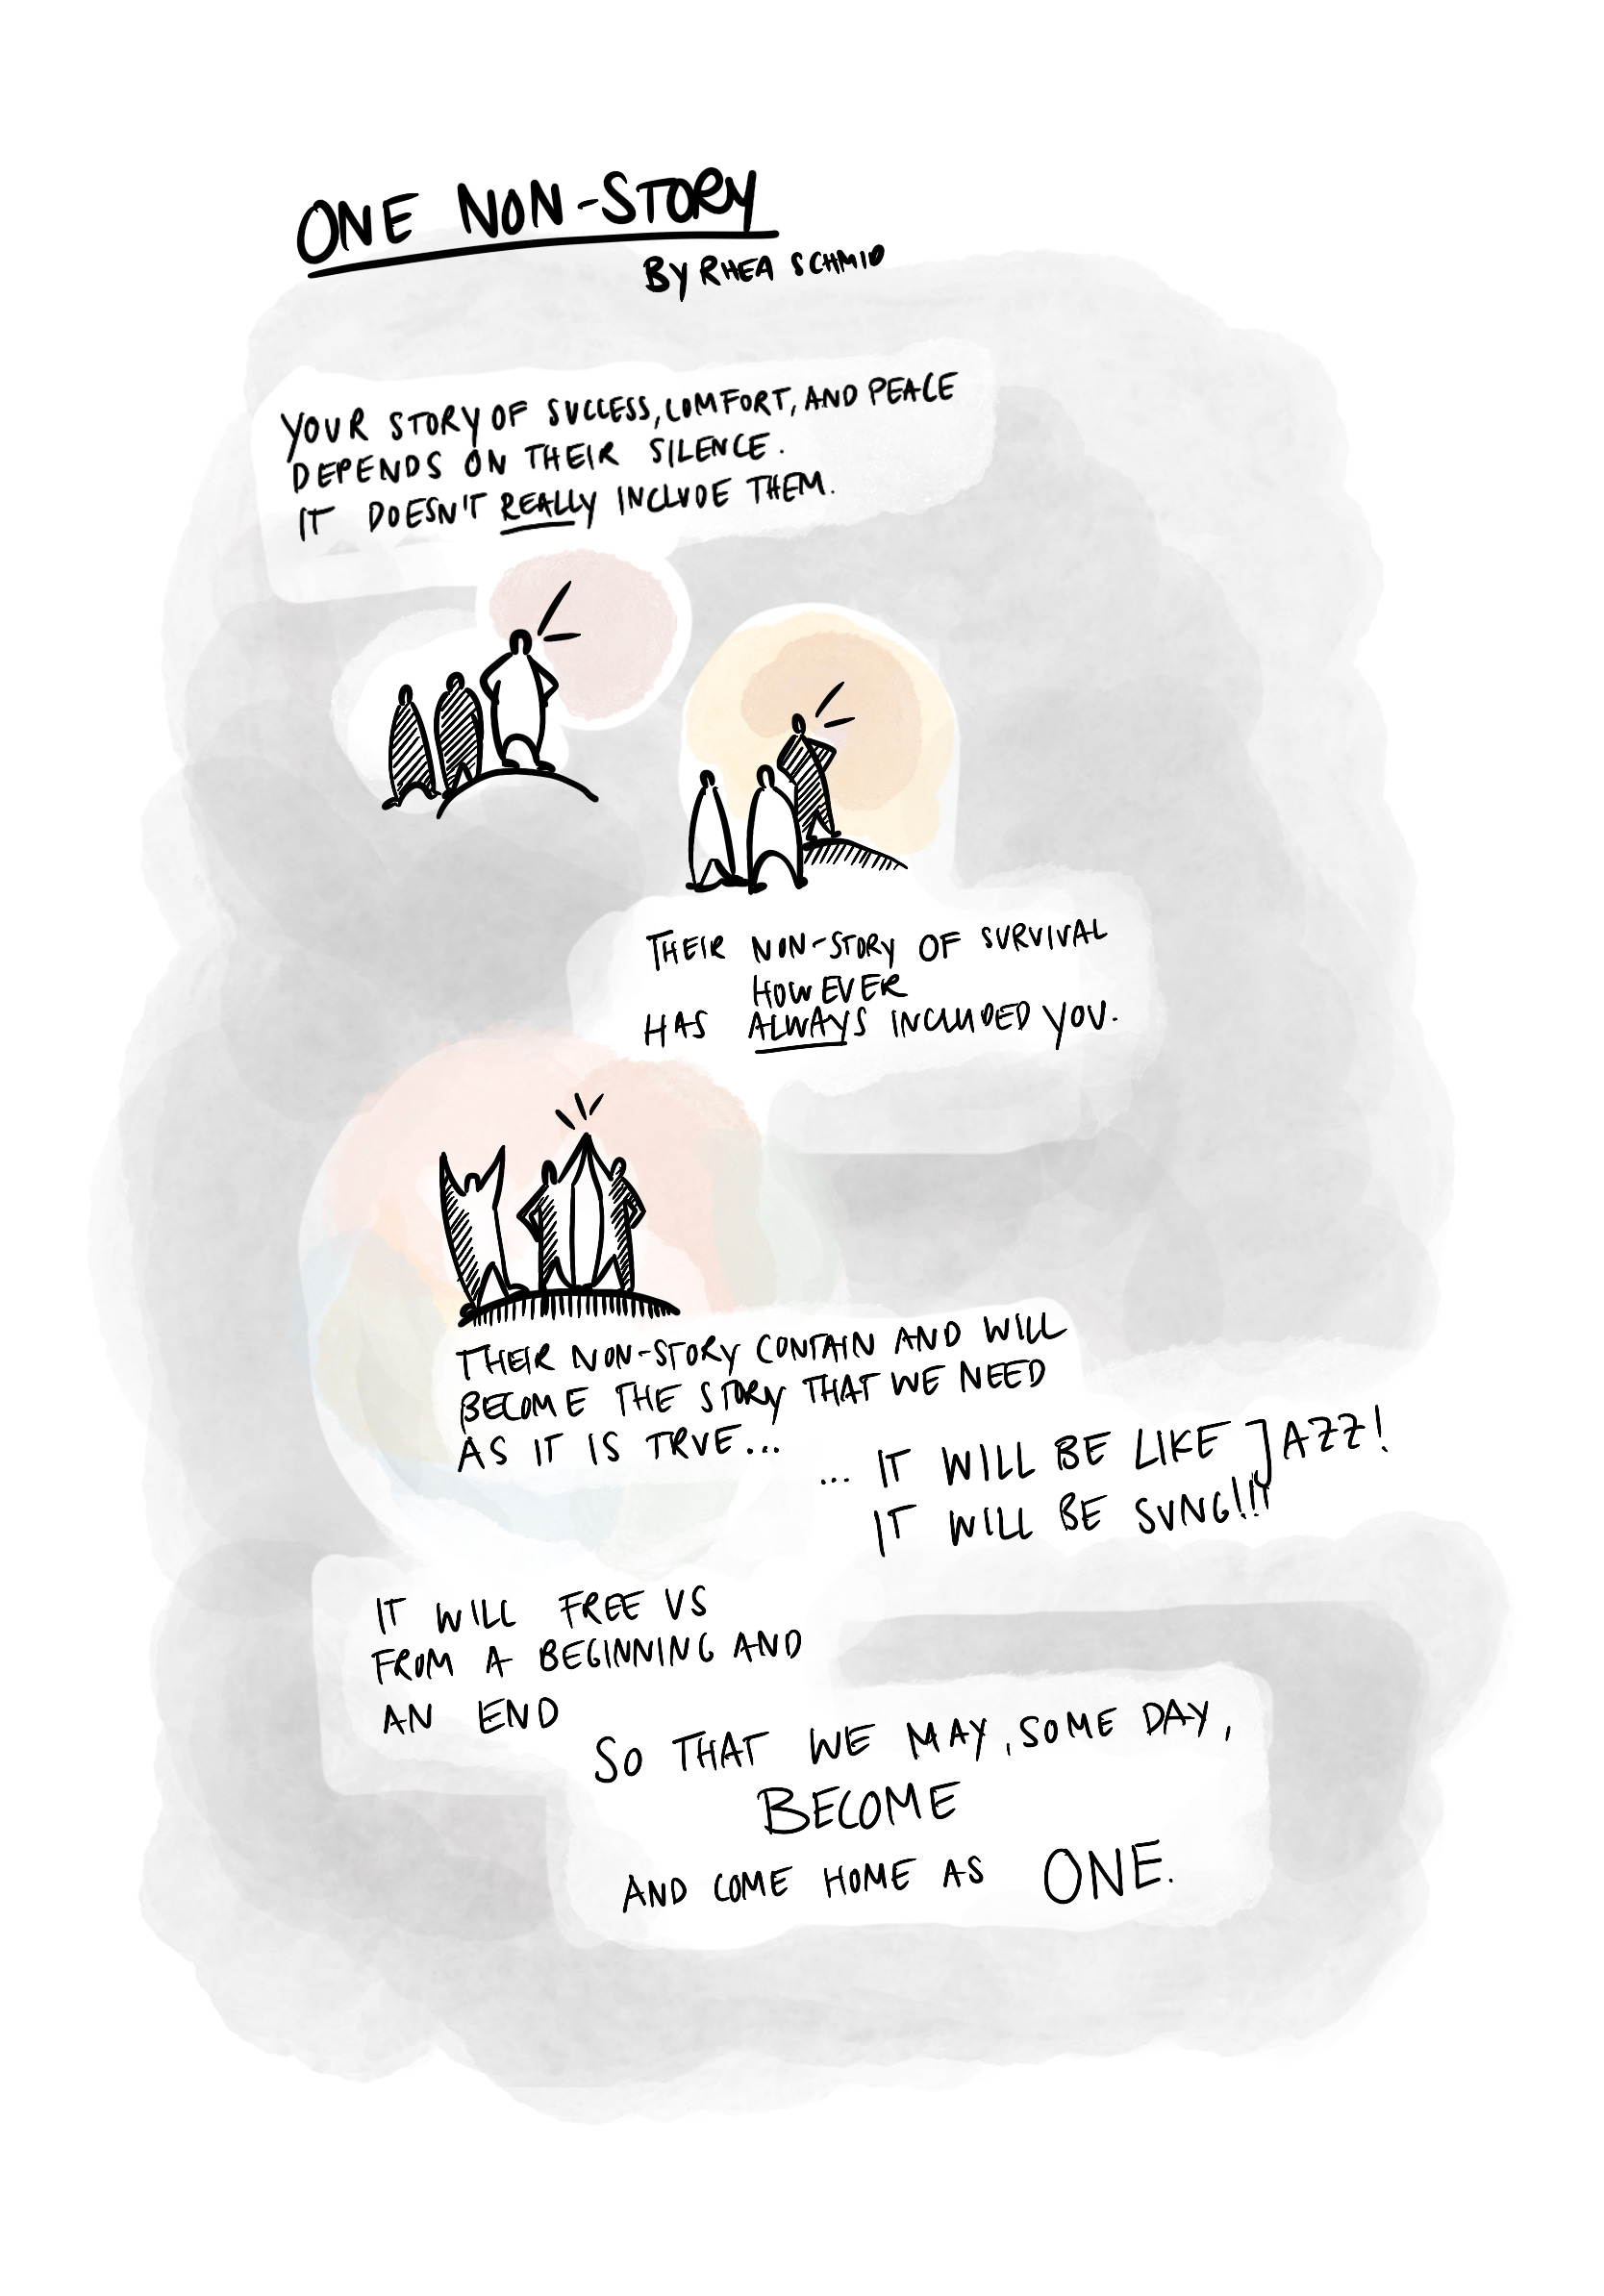 ONE NON-STORY
BY RHEA SCHMID
YOUR STORY OF SUCCESS, COMFORT, AND PEACE
DEPENDS ON THEIR SILENCE.
IT DOESN'T REALLY INCLUDE THEM.
THEIR NON-STORY OF SURVIVAL
HOWEVER
HAS ALWAYS INCLUDED YOU.
THEIR NON-STORY CONTAIN AND WILL
BECOME THE STORY THAT WE NEED
AS IT IS TRUE...
... IT WILL BE LIKE JAZZ!
IT WILL BE SUNG!!!
IT WILL FREE US
FROM A BEGINNING AND
AN END
SO THAT WE MAY, SOME DAY,
BECOME
AND COME HOME AS ONE.